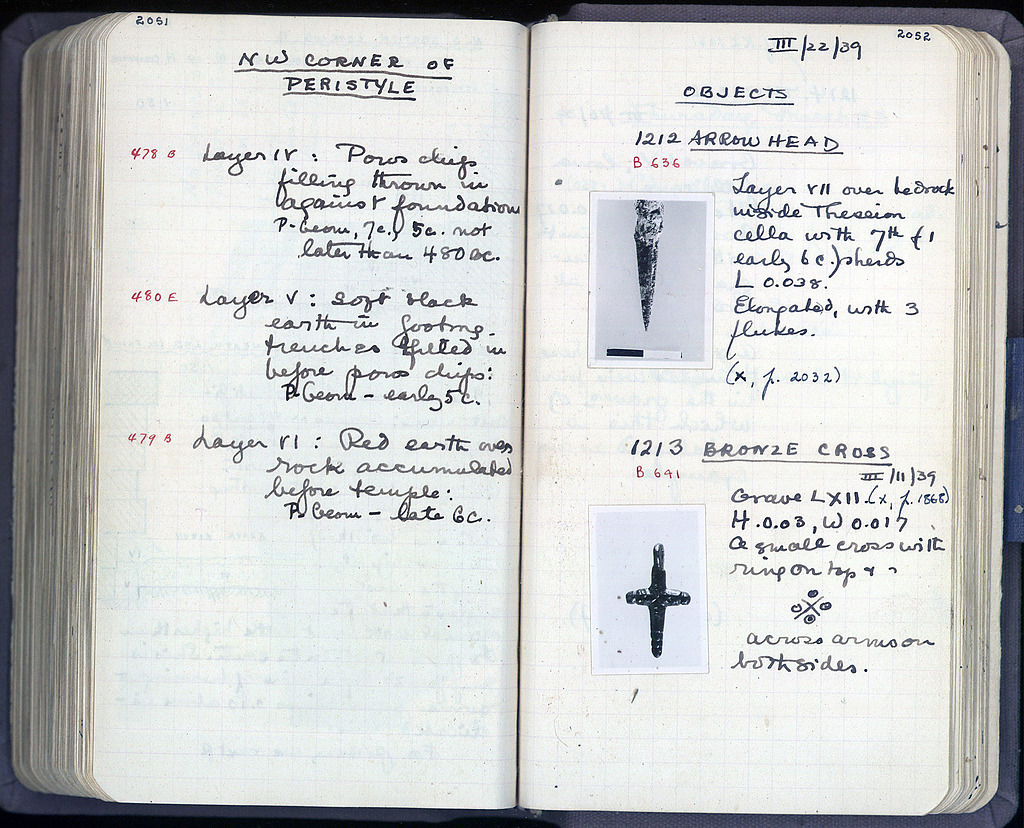 2051
NW CORNER OF
PERISTYLE
478 B Layer IV : Poros chips
filling thrown in
against foundation
P-Geom, 7c., 5c. not
later than 480 BC.
480 E Layer V : Soft black
earth in footing-
trenches filled in
before poros chips:
P-Geom - early 5c.
479 B Layer VI : Red earth over
rock accumulated
before temple:
P-Geom - late 6c.
2052
III/22/39
OBJECTS
1212 ARROWHEAD
B 636
Layer VII over bedrock
inside Theseion
cella with 7th &
early 6c.) sherds
L 0.038.
Elongated, with 3
flukes.
(x, p. 2032)
1213 BRONZE CROSS
B 641
III/11/39
Grave LXII. (x, p. 1868)
H. 0.03, W 0.017
A small cross with
ring on top &
across arms on
both sides.